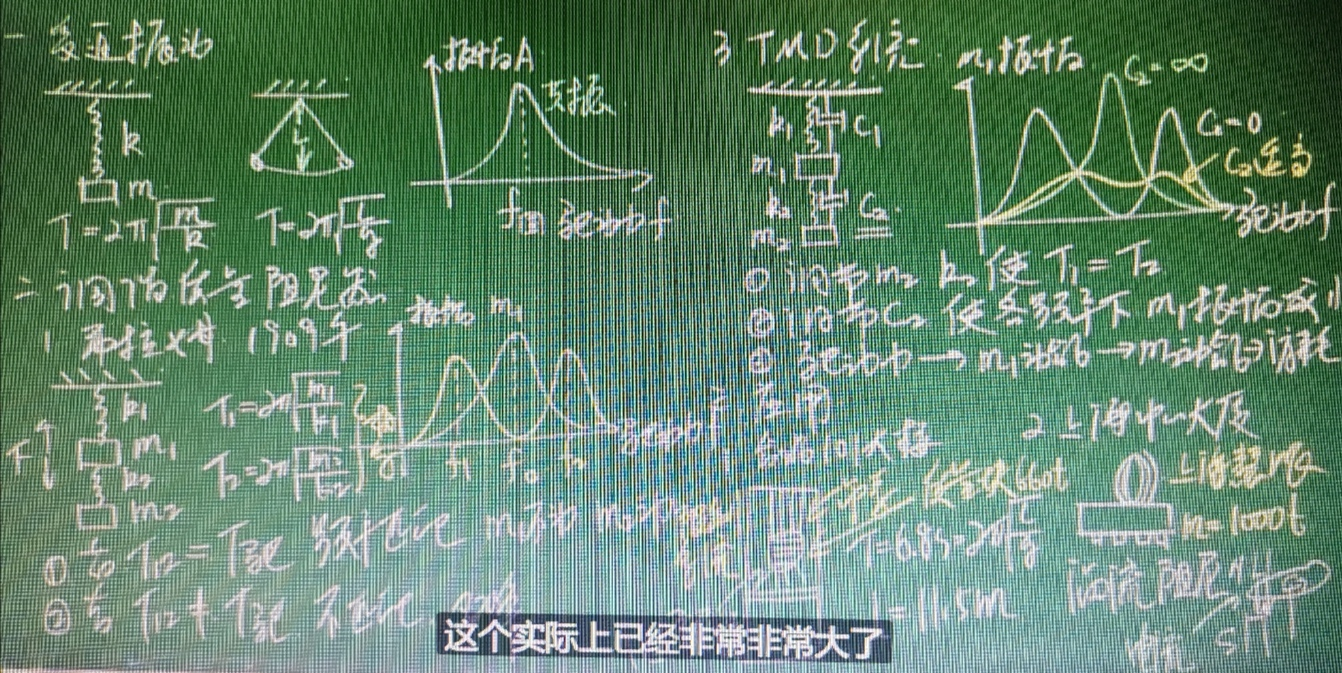 一 受迫振动
k
m
T=2π√(m/k)
T=2π√(L/g)
振幅A
共振
f固 驱动力f
二 调谐质量阻尼器
1 弗拉姆 1909年
k₁
m₁
k₂
m₂
T₁=2π√(m₁/k₁)
T₂=2π√(m₂/k₂)
振幅 m₁
f₁ f₀ f₂
驱动力f
① 若 T₁₂=T驱
② 若 T₁₂≠T驱
3 TMD系统
k₁ C₁
m₁
k₂ C₂
m₂
m₁振幅
C₂=∞
C₂=0
C₂适当
驱动力f
① 调节m₂ k₂使 T₁=T₂
② 调节C₂ 使各频率下 m₁振幅
③ 驱动力→m₁动能→m₂动能→消耗
三 应用
台北101大楼
660t
T=6.8s=2π√(L/g)
L=11.5m
2 上海中心大厦
上海慧眼
m=1000t
涡流阻尼
这个实际上已经非常非常大了